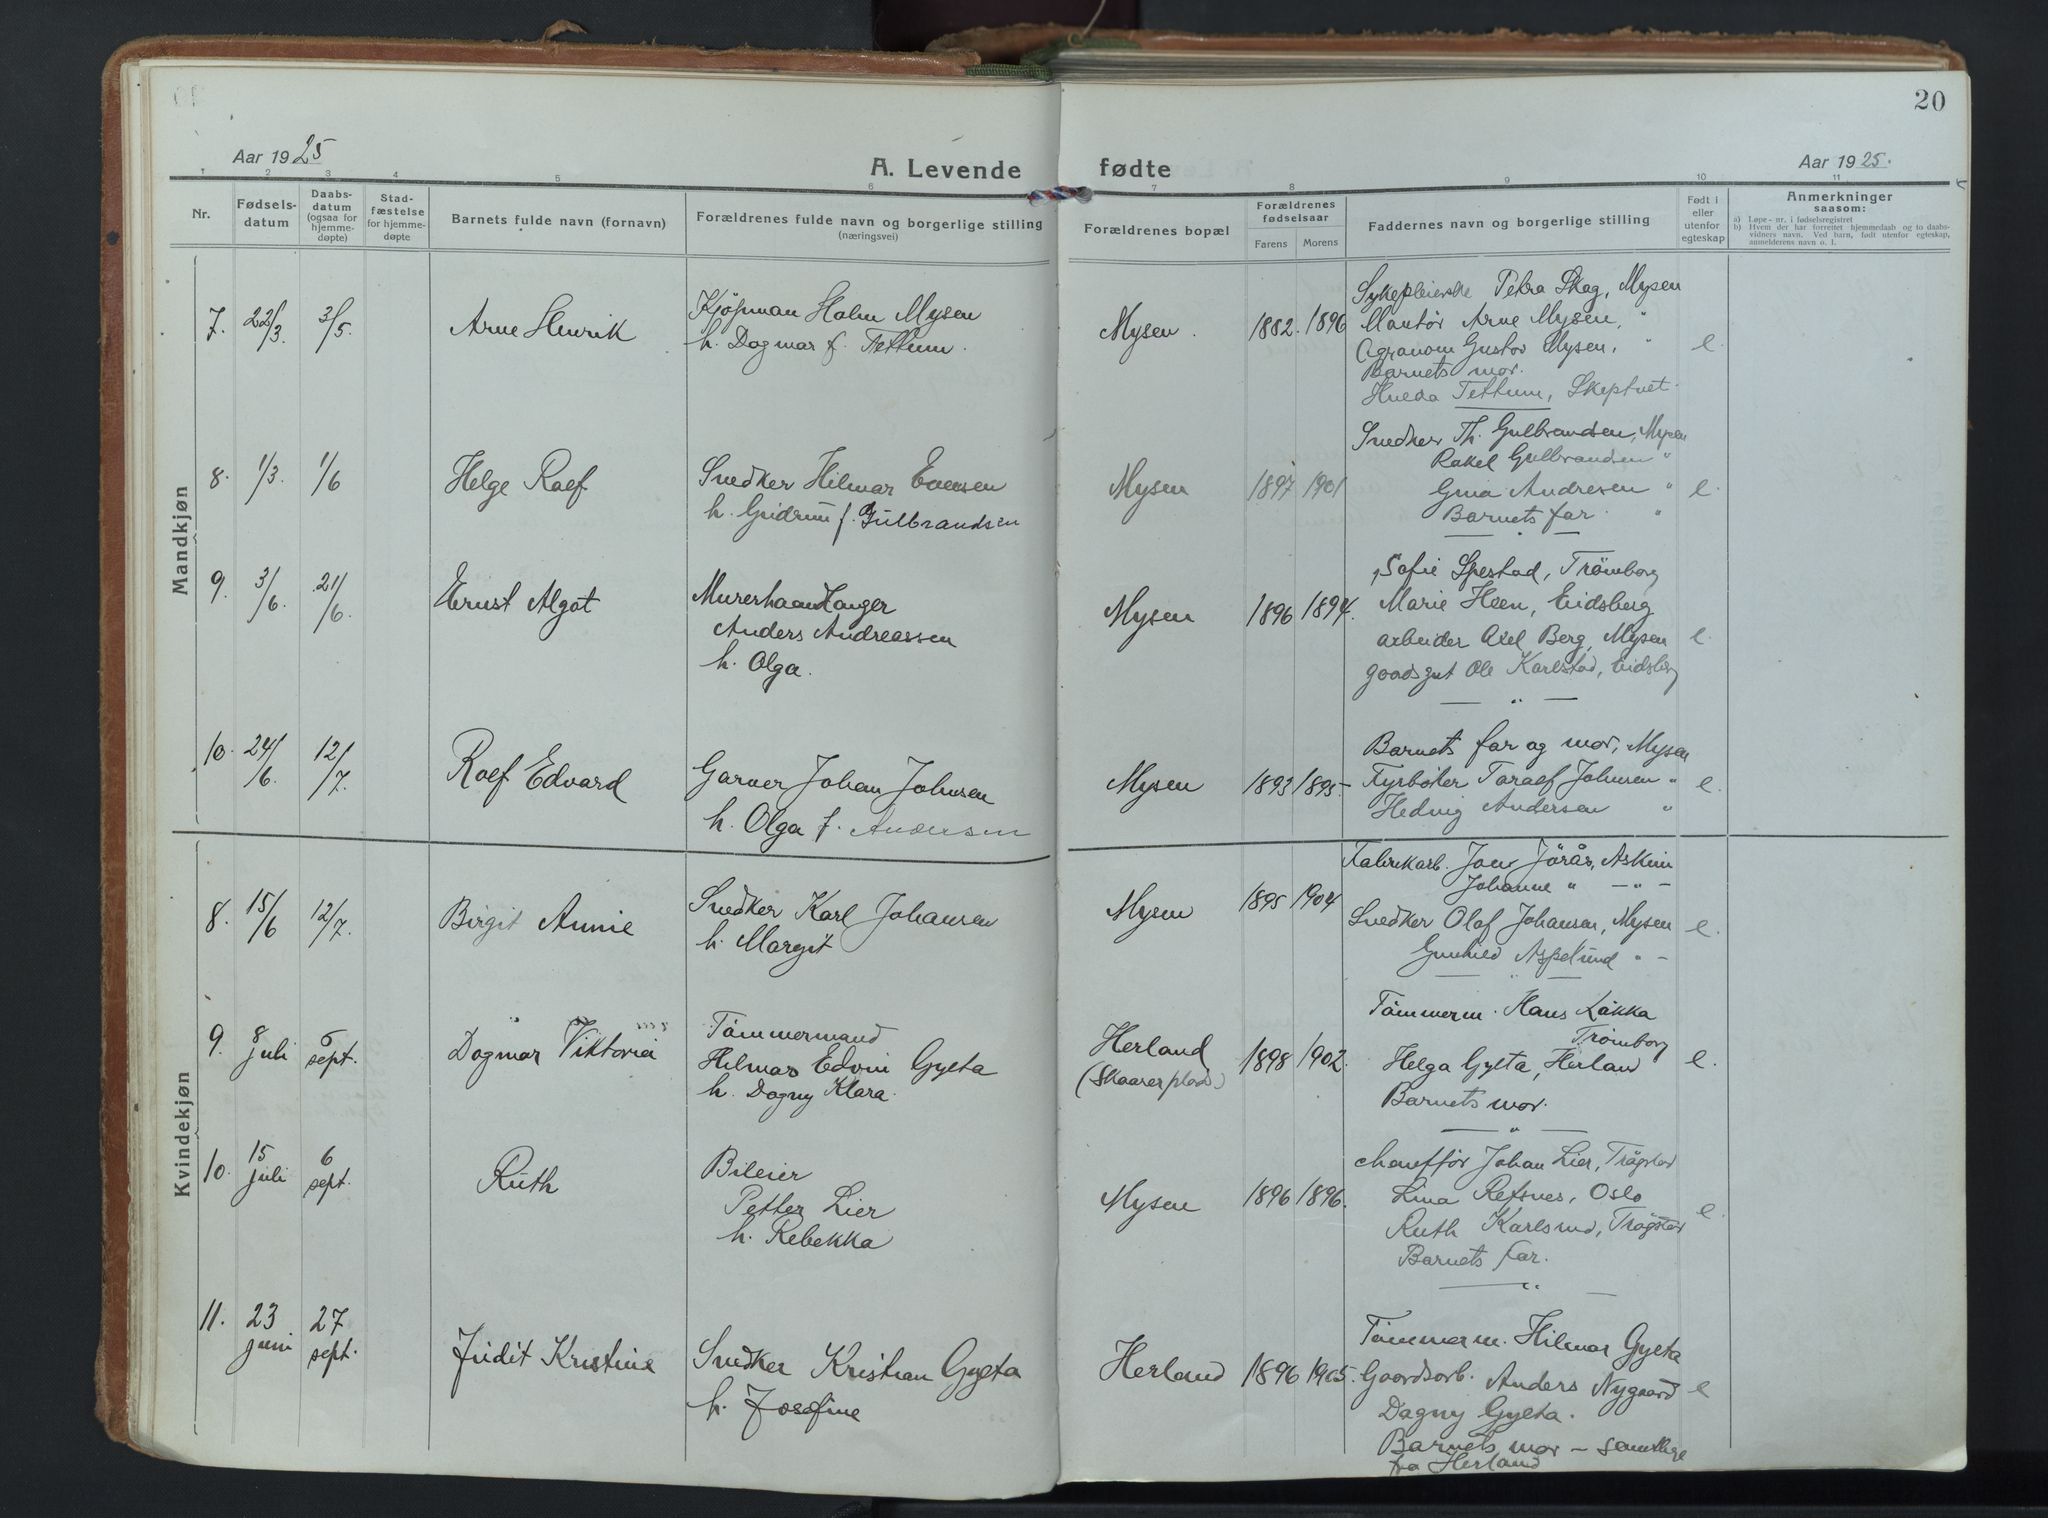 20
Aar 1925
A. Levende fødte
Aar 1925.
1 2 3 4 5 6 7 8 9 10 11
Nr.
Fødsels-
datum
Daabs-
datum
(ogsaa for
hjemme-
døpte)
Stad-
fæstelse
for hjemme-
døpte
Barnets fulde navn (fornavn)
Forældrenes fulde navn og borgerlige stilling
(næringsvei)
Forældrenes bopæl
Forældrenes
fødselsaar
Farens Morens
Faddernes navn og borgerlige stilling
Født i
eller
utenfor
egteskap
Anmerkninger
saasom:
a) Løpe-nr. i fødselsregistret
b) Hvem der har forrettet hjemmedaab og to daabs-
vidners navn. Ved barn, født utenfor egteskap,
anmelderens navn o. l.
Mandkjøn
7. 22/3. 3/5.
Arne Henrik
Kjøpman Holm Mysen
h. Dagmar f. Tettum.
Mysen.
1882. 1896
Sykepleierske Petra Skog, Mysen
Montør Arne Mysen, "
Agronom Gustav Mysen, "
Barnets mor.
Hulda Tettum, Skeptvet.
e.
8. 1/3. 1/6
Helge Rolf
Snedker Hilmar Evensen
h. Gudrun f. Gulbrandsen
Mysen
1897 1901
Snedker Th. Gulbrandsen, Mysen
Rakel Gulbrandsen "
Gina Andresen "
Barnets far. "
e.
9. 3/6. 21/6.
Ernst Algot
Murerhaandlanger
Anders Andreassen
h. Olga.
Mysen
1896 1894.
Sofie Spestad, Trømborg
Marie Heen, Eidsberg
arbeider Axel Berg, Mysen
gaardsgut Ole Karlstad, Eidsberg
e.
10. 24/6. 12/7.
Rolf Edvard
Garver Johan Johnsen
h. Olga f. Andersen
Mysen
1893 1895-
Barnets far og mor, Mysen
Fyrbøter Toralf Johnsen "
Hedvig Andersen "
e.
Kvindekjøn
8. 15/6 12/7.
Birgit Annie
Snedker Karl Johansen
h. Margit
Mysen
1895 1904
Fabrikarb. Jon Jörås, Askim
Johanne " — " —
Snedker Olaf Johansen, Mysen
Gunhild Aspelund " —
e.
9. 8 juli 6 sept.
Dagmar Viktoria
Tømmermand
Hilmar Edvin Gylta
h. Dagny Klara.
Herland
(Skaarerplads)
1898 1902.
Tømmerm. Hans Løkka
Trømborg
Helga Gylta, Herland
Barnets mor.
e.
10. 15 juli 6 sept.
Ruth
Bileier
Petter Lier
h. Rebekka
Mysen
1896 1896.
Chauffør Johan Lier, Trøgstad
Lina Refsnes, Oslo
Ruth Karlsrud, Trøgstad
Barnets far.
e.
11. 23 juni 27 sept.
Judit Kristine
Snedker Kristian Gylta
h. Josefine
Herland
1896 1905.
Tømmerm. Hilmar Gylta
Gaardsarb. Anders Nygaard
Dagny Gylta.
Barnets mor — samtlige
fra Herland
e